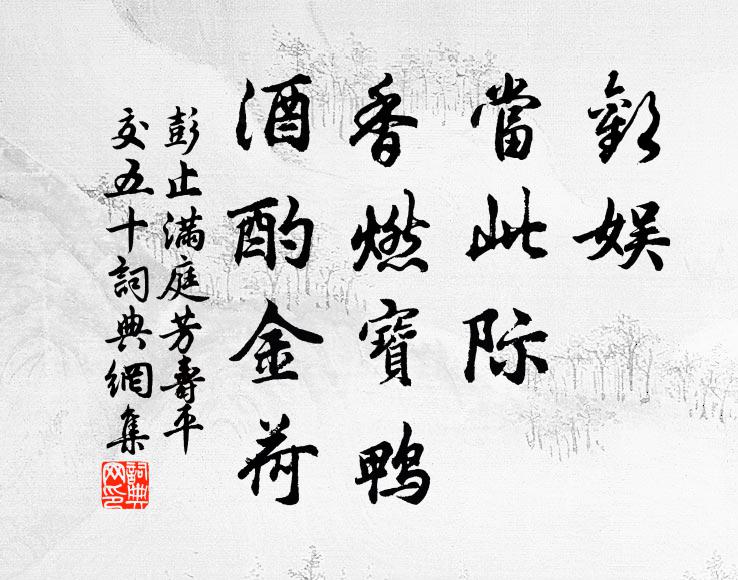 歡娛
當此际
香燃寶鴨
酒酌金荷
彭止滿庭芳壽平
交五十詞典網集
詞典
网印